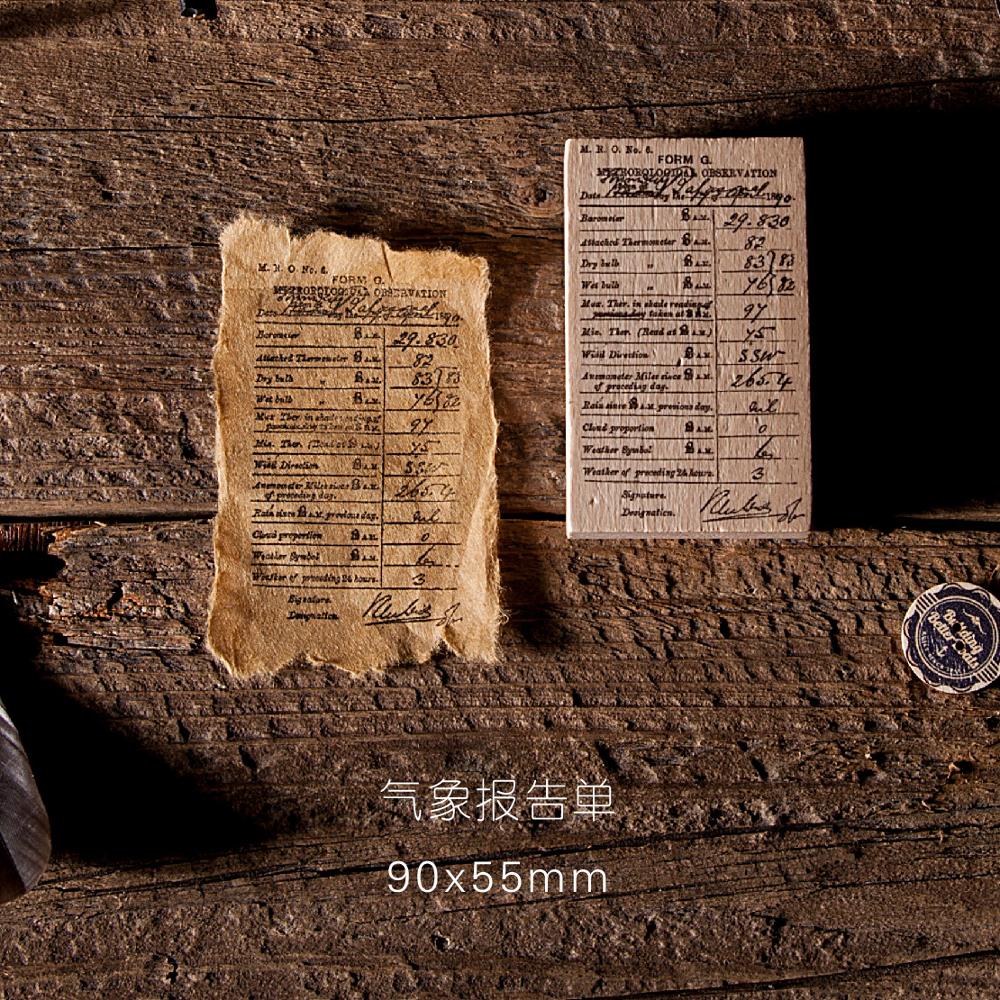 M. R. O. No. 6.
FORM G.
METEOROLOGICAL OBSERVATION
Date
1890
Barometer 8 A.M. 29.830
Attached Thermometer 8 A.M. 82
Dry bulb „ 8 A.M. 83 } 83
Wet bulb „ 8 A.M. 76 } 82
Max. Ther. in shade reading of
taken at 8 A.M. 97
Min. Ther. (Read at 8 A.M.) 75
Wind Direction 8 A.M. SSW
Anemometer Miles since 8 A.M. 265.4
of preceding day.
Rain since 8 A.M. previous day.
Cloud proportion 8 A.M. 0
Weather Symbol 8 A.M. b
Weather of preceding 24 hours. 3
Signature.
Designation.
M. R. O. No. 6.
FORM G.
METEOROLOGICAL OBSERVATION
Date
1890
Barometer 8 A.M. 29.830
Attached Thermometer 8 A.M. 82
Dry bulb „ 8 A.M. 83 } 83
Wet bulb „ 8 A.M. 76 } 82
Max. Ther. in shade reading of
taken at 8 A.M. 97
Min. Ther. (Read at 8 A.M.) 75
Wind Direction 8 A.M. SSW
Anemometer Miles since 8 A.M. 265.4
of preceding day.
Rain since 8 A.M. previous day.
Cloud proportion 8 A.M. 0
Weather Symbol 8 A.M. b
Weather of preceding 24 hours. 3
Signature.
Designation.
气象报告单
90x55mm